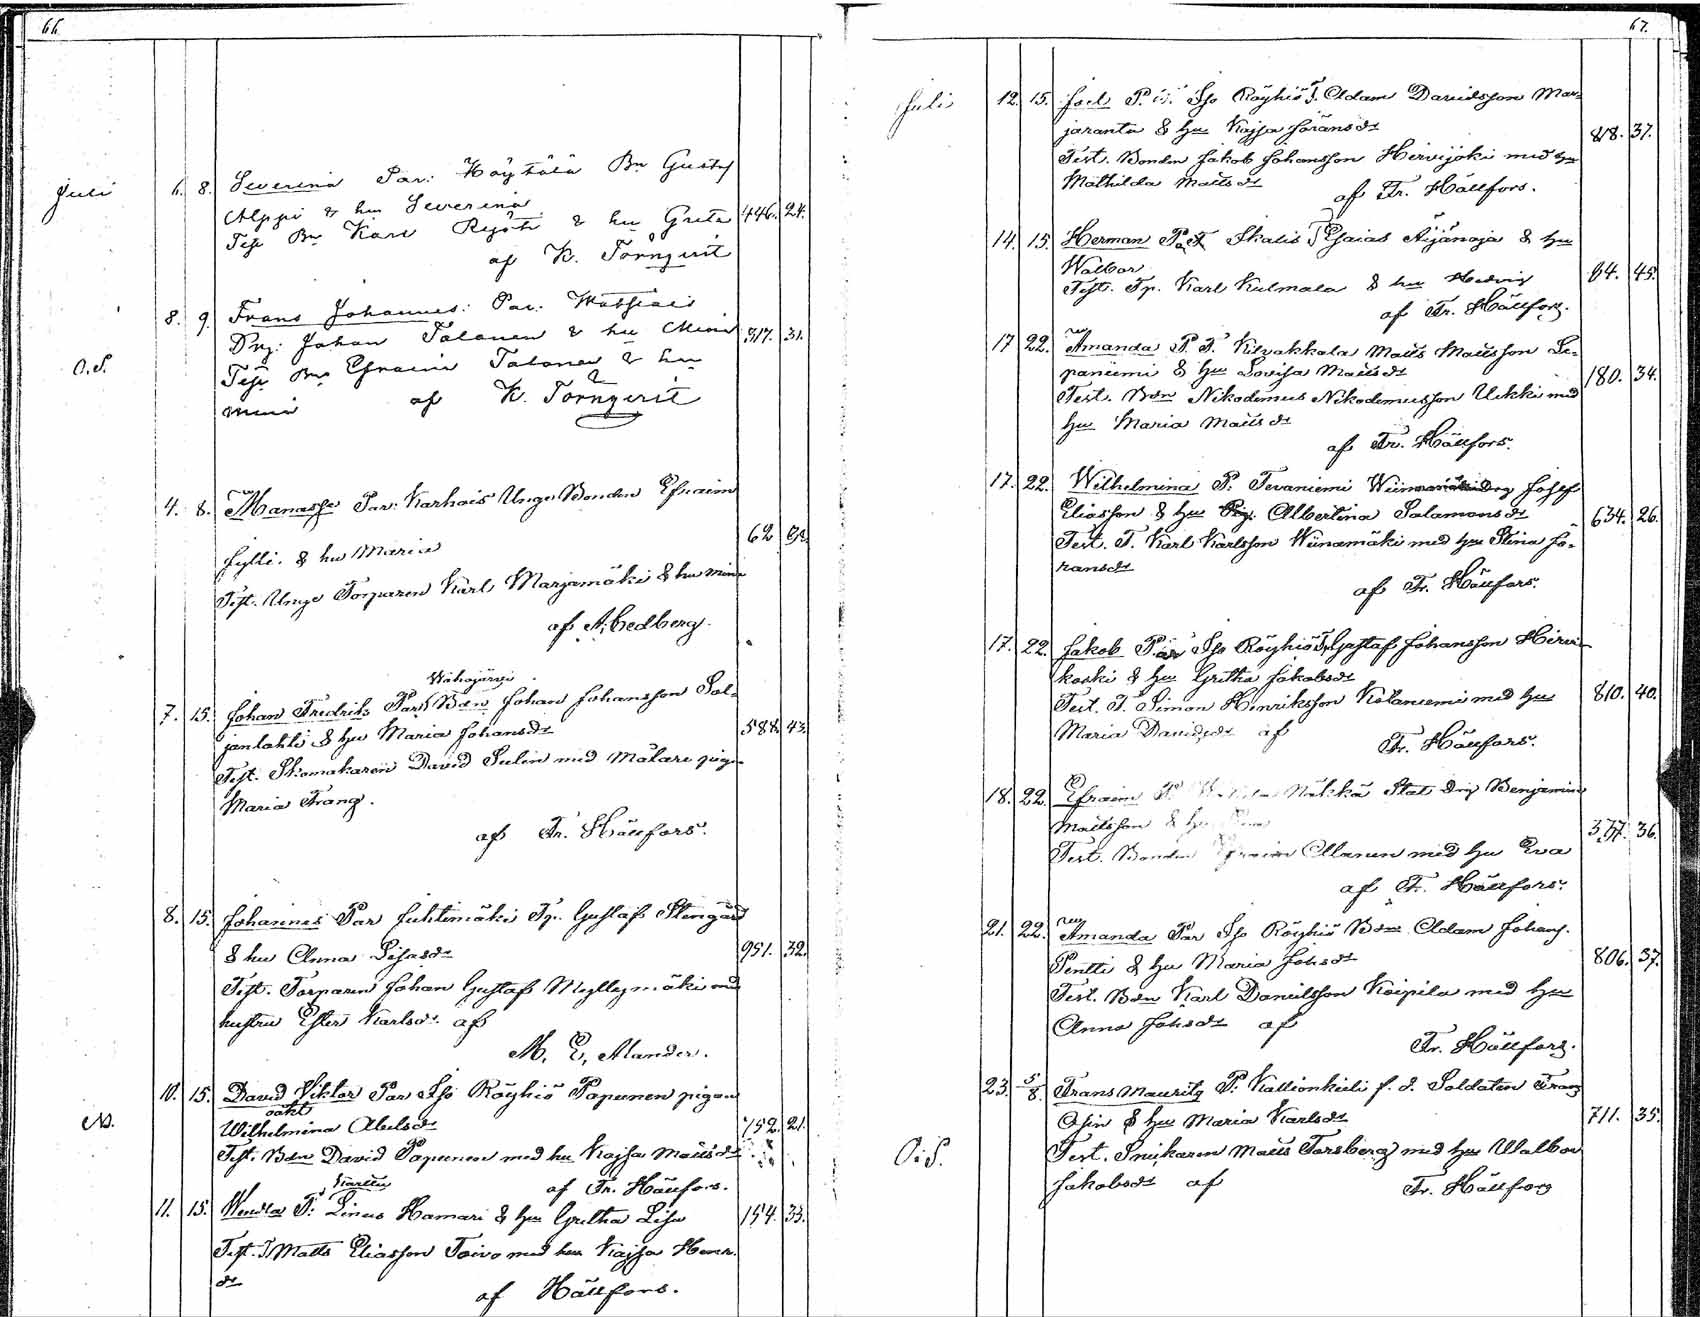 66.
Juli 6. 8. Severina Par: Köyhölä Bn Gustaf
Alppi & hu Severina 446. 24.
Test Bn Karl Rejoti & hu Greta
af K. Törnqvist
8. 9. Frans Johannes: Par:
Drg: Johan Talonen & hu Mina 317. 31.
O.S.
Test Bn Efraim Talonen & hu
Mina af K. Törnqvist
4. 8. Manasse Par: Karhais Unge Bonden Efraim
62
Jylli. & hu Maria
Test. Unge Torparen Karl Marjamäki & hu Mina
af A. Cedberg.
Wähäjärvi
7. 15. Johan Fredrik Par Bdn Johan Johansson Sal-
janlahti & hu Maria Johansdr 588. 43.
Test. Skomakaren David Sulin med Målare pigan
Maria Frang.
af Fr. Hällfors.
8. 15. Johannes Par Juhtimäki Tp. Gustaf Stengård
& hu Anna Lisasdr 951. 32.
Test. Torparen Johan Gustaf Myllymäki med
hustru Ester Karlsdr. af
M. E. Alander.
10. 15. David Viktor Par Iso Röyhiö Papunen pigan
oäkt
N. Wilhelmina Abelsdr 752. 21.
Test. Bdn David Papunen med hu Kajsa Mattsdr
af Fr. Hällfors.
11. 15. Wendla P. Linus Hamari & hu Gretha Lisa 154. 33.
Test. T. Matts Eliasson Toivo med hu Kajsa Henr.
dr
af Hällfors.
67.
Juli 12. 15. Joel P. Iso Röyhiö T. Adam Davidsson Mar-
jaranta & hu Kajsa Göransdr 818. 37.
Test. Bonden Jakob Johansson Hirvijoki med hu
Mathilda Mattsdr
af Fr. Hällfors.
14. 15. Herman Skalis T Esaias Äijänoja & hu
Walbor 64. 45.
Test. Tp. Karl Kulmala & hu Hedvig
af Fr. Hällfors.
17 22. Amanda P. T. Kilvakkala Matts Mattsson Le-
paniemi & hu Lovisa Mattsdr 180. 34.
Test. Bdn Nikodemus Nikodemusson Uckki med
hu Maria Mattsdr
af Fr. Hällfors.
17. 22. Wilhelmina P. Tevaniemi Josef
Eliasson & hu Albertina Salamonsdr 634. 26.
Test. T. Karl Karlsson Wiinamäki med hu Stina Jö-
ransdr
af Fr. Hällfors.
17. 22. Jakob Par Iso Röyhiö T. Gustaf Johansson Hirvi-
koski & hu Gretha Jakobsdr
Test. T. Simon Henriksson Kotaniemi med hu 810. 40.
Maria Davidsdr af Fr. Hällfors.
18. 22. Efraim P. Näkkä Stat drg Benjamin
Mattsson & hu 337. 36.
Test. Bonden Efraim Mannen med hu Eva
af Fr. Hällfors.
21. 22. Amanda Par Iso Röyhiö Bdn Adam Johans.
Pentti & hu Maria Johsdr 806. 37.
Test. Bdn Karl Danielsson Koipila med hu
Anna Johsdr af
Fr. Hällfors.
23. 5/8. Frans Mauritz P. Kallionkieli f. d. Soldaten Frans
Osin & hu Maria Karlsdr 711. 35.
O.S. Test. Snikaren Matts Forsberg med hu Walbor
Jakobsdr af Fr. Hällfors